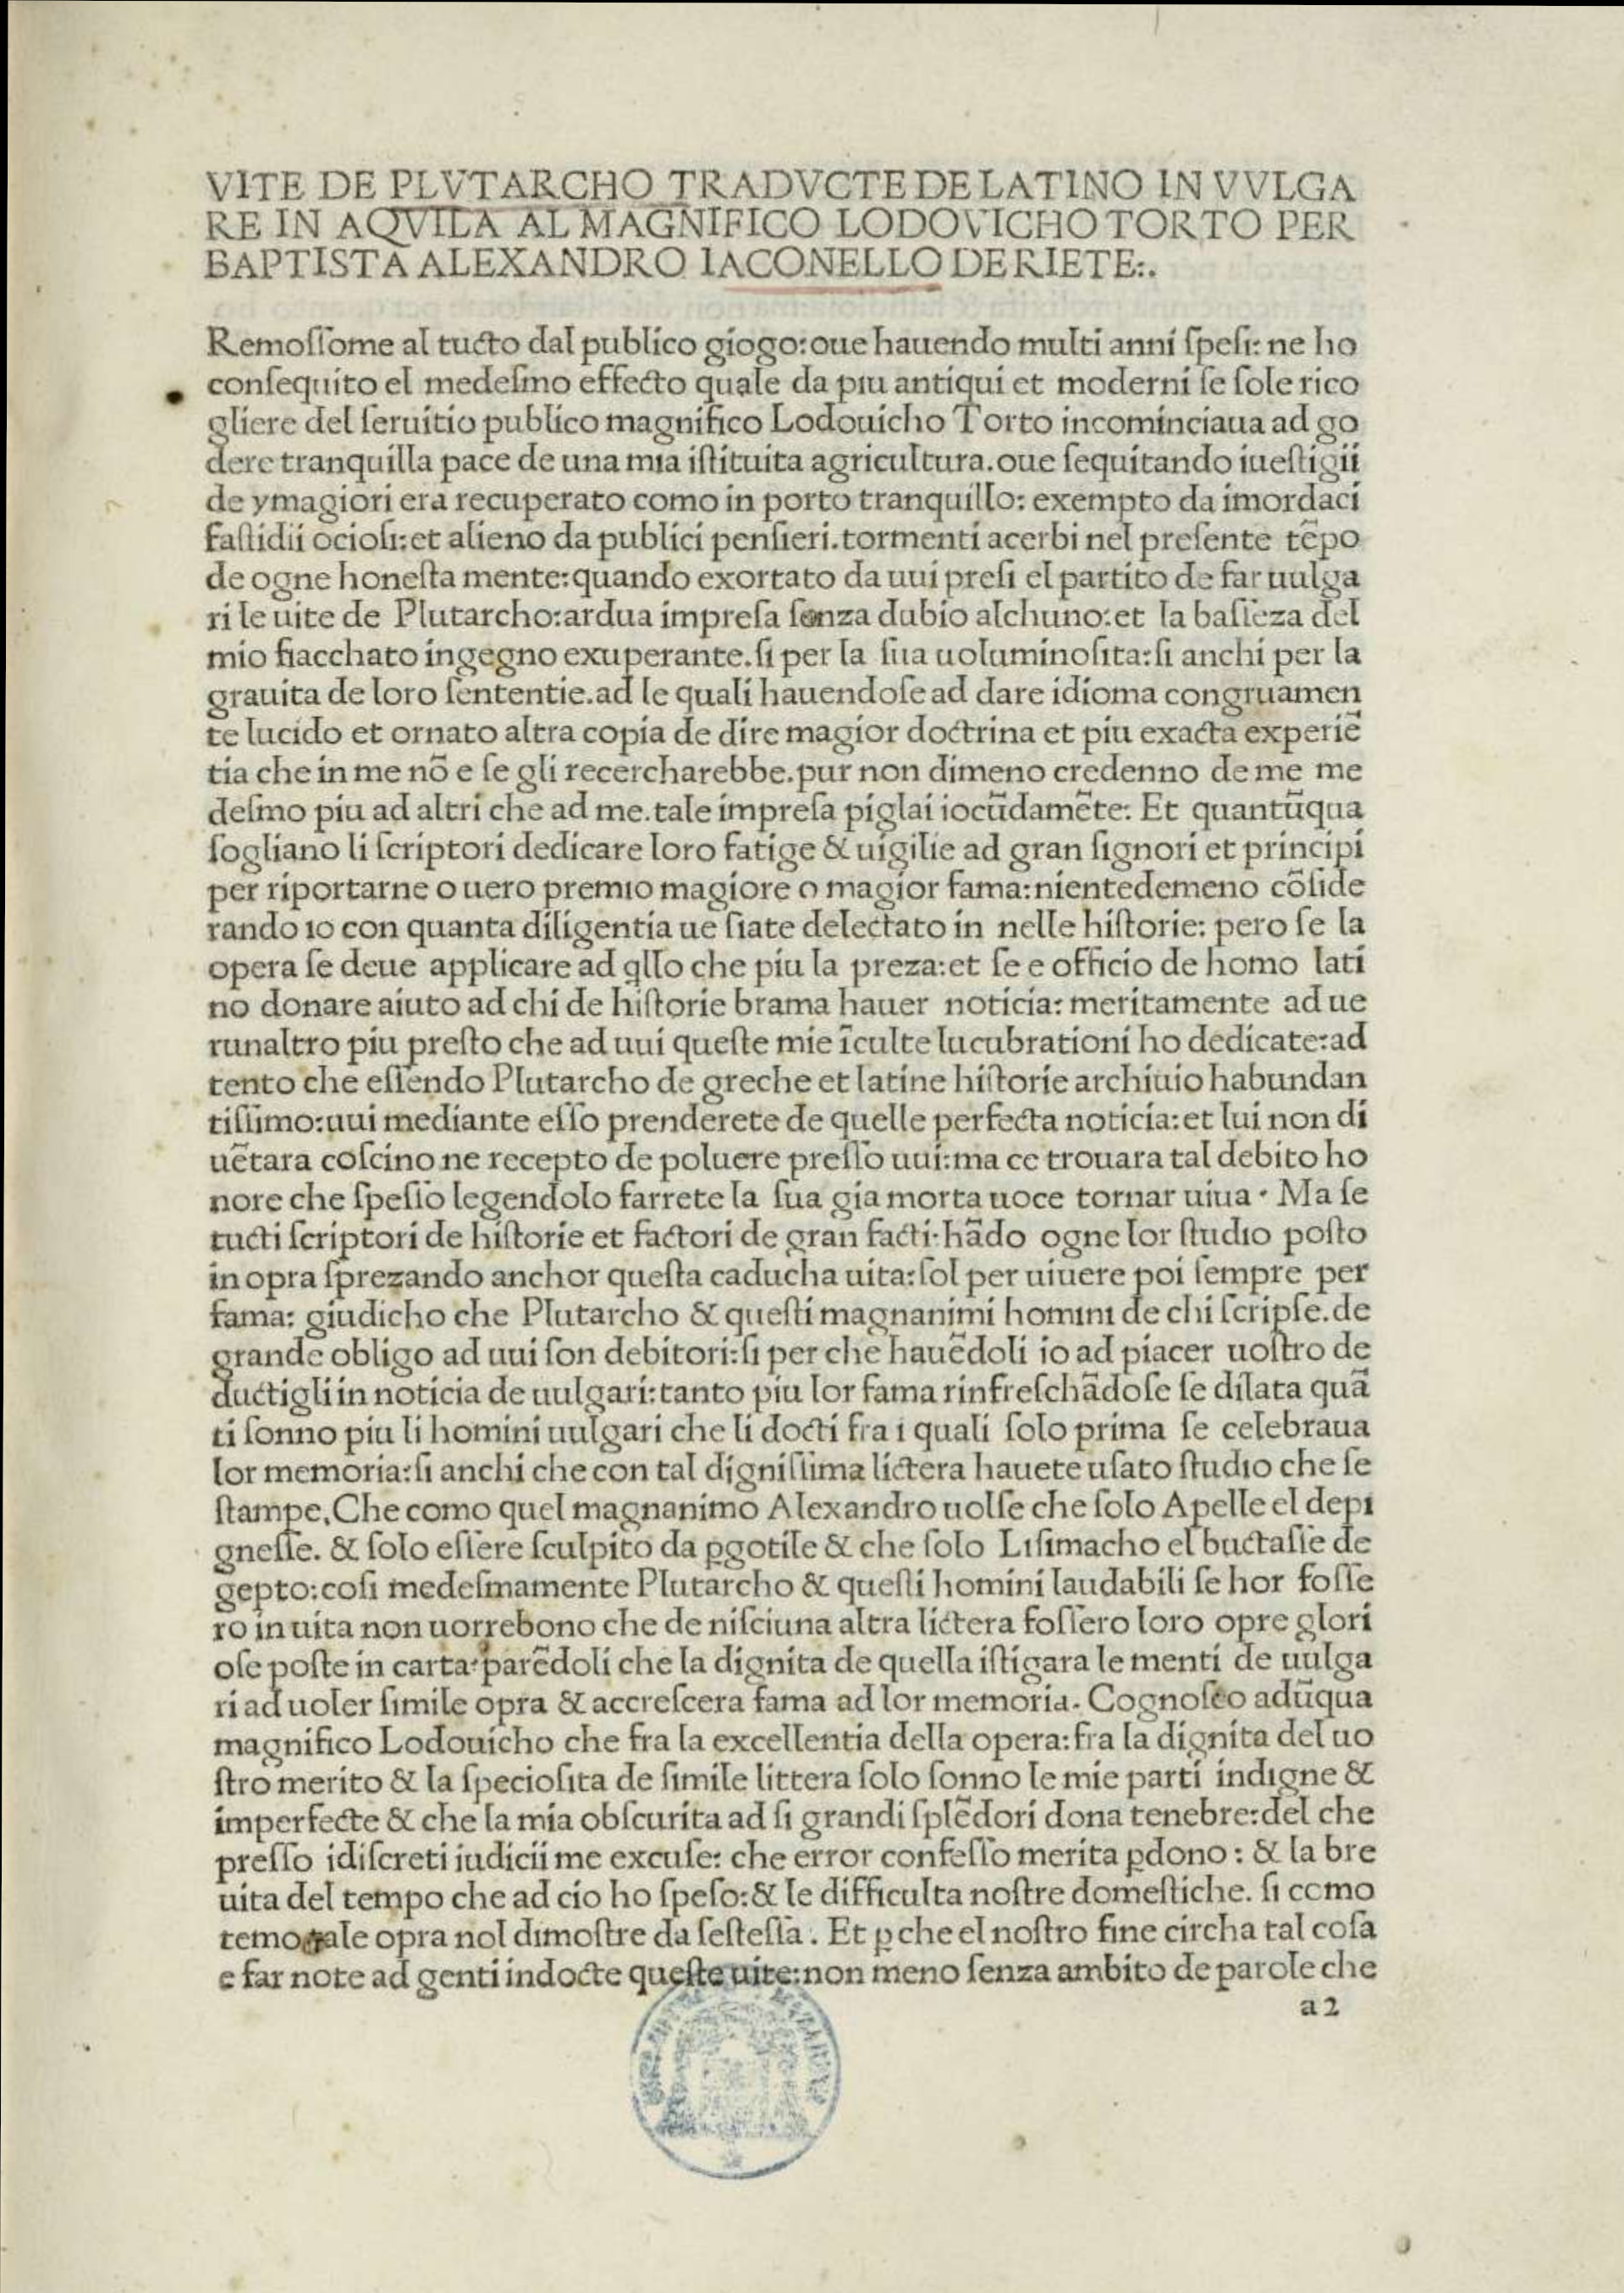 VITE DE PLVTARCHO TRADVCTE DE LATINO IN VVLGA
RE IN AQVILA AL MAGNIFICO LODOVICHO TORTO PER
BAPTISTA ALEXANDRO IACONELLO DE RIETE:.
Remoſſome al tucto dal publico giogo: oue hauendo multi anni ſpeſi: ne ho
conſequito el medeſmo effecto quale da piu antiqui et moderni ſe ſole rico
gliere del ſeruitio publico magnifico Lodouicho Torto incominciaua ad go
dere tranquilla pace de una mia iſtituita agricultura. oue ſequitando iueſtigii
de ymagiori era recuperato como in porto tranquillo: exempto da imordaci
faſtidii ocioſi: et alieno da publici penſieri. tormenti acerbi nel preſente tẽpo
de ogne honeſta mente: quando exortato da uui preſi el partito de far uulga
ri le uite de Plutarcho: ardua impreſa ſenza dubio alchuno: et la baſſeza del
mio fiacchato ingegno exuperante. ſi per la ſua uoluminoſita: ſi anchi per la
grauita de loro ſententie. ad le quali hauendoſe ad dare idioma congruamen
te lucido et ornato altra copia de dire magior doctrina et piu exacta experiẽ
tia che in me nõ e ſe gli recercharebbe. pur non dimeno credenno de me me
deſmo piu ad altri che ad me. tale impreſa piglai iocũdamẽte: Et quantũqua
ſogliano li ſcriptori dedicare loro fatige & uigilie ad gran ſignori et principi
per riportarne o uero premio magiore o magior fama: nientedemeno cõſide
rando io con quanta diligentia ue ſiate delectato in nelle hiſtorie: pero ſe la
opera ſe deue applicare ad qllo che piu la preza: et ſe e officio de homo lati
no donare aiuto ad chi de hiſtorie brama hauer noticia: meritamente ad ue
runaltro piu preſto che ad uui queſte mie ĩculte lucubrationi ho dedicate: ad
tento che eſſendo Plutarcho de greche et latine hiſtorie archiuio habundan
tiſſimo: uui mediante eſſo prenderete de quelle perfecta noticia: et lui non di
uẽtara coſcino ne recepto de poluere preſſo uui: ma ce trouara tal debito ho
nore che ſpeſſo legendolo farrete la ſua gia morta uoce tornar uiua · Ma ſe
tucti ſcriptori de hiſtorie et factori de gran facti: hãdo ogne lor ſtudio poſto
in opra ſprezando anchor queſta caducha uita: ſol per uiuere poi ſempre per
fama: giudicho che Plutarcho & queſti magnanimi homini de chi ſcripſe. de
grande obligo ad uui ſon debitori: ſi per che hauẽdoli io ad piacer uoſtro de
ductigli in noticia de uulgari: tanto piu lor fama rinfreſchãdoſe ſe dilata quã
ti ſonno piu li homini uulgari che li docti fra i quali ſolo prima ſe celebraua
lor memoria: ſi anchi che con tal digniſſima lictera hauete uſato ſtudio che ſe
ſtampe. Che como quel magnanimo Alexandro uolſe che ſolo Apelle el depi
gneſſe. & ſolo eſſere ſculpito da ꝑgotile & che ſolo Liſimacho el buctaſſe de
gepto: coſi medeſmamente Plutarcho & queſti homini laudabili ſe hor foſſe
ro in uita non uorrebono che de niſciuna altra lictera foſſero loro opre glori
oſe poſte in carta: parẽdoli che la dignita de quella iſtigara le menti de uulga
ri ad uoler ſimile opra & accreſcera fama ad lor memoria. Cognoſco adũqua
magnifico Lodouicho che fra la excellentia della opera: fra la dignita del uo
ſtro merito & la ſpecioſita de ſimile littera ſolo ſonno le mie parti indigne &
imperfecte & che la mia obſcurita ad ſi grandi ſplẽdori dona tenebre: del che
preſſo idiſcreti iudicii me excuſe: che error confeſſo merita ꝑdono: & la bre
uita del tempo che ad cio ho ſpeſo: & le difficulta noſtre domeſtiche. ſi como
temo tale opra nol dimoſtre da ſeſteſſa. Et ꝑche el noſtro fine circha tal coſa
e far note ad genti indocte queſte uite: non meno ſenza ambito de parole che
a2